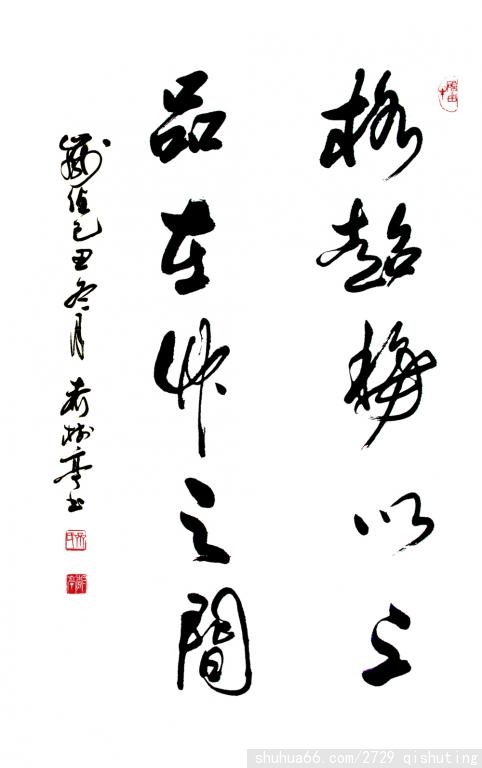 格超梅以上
品在竹之間
歲值己丑冬月 齐树亭书
shuhua66.com/2729 qishuting